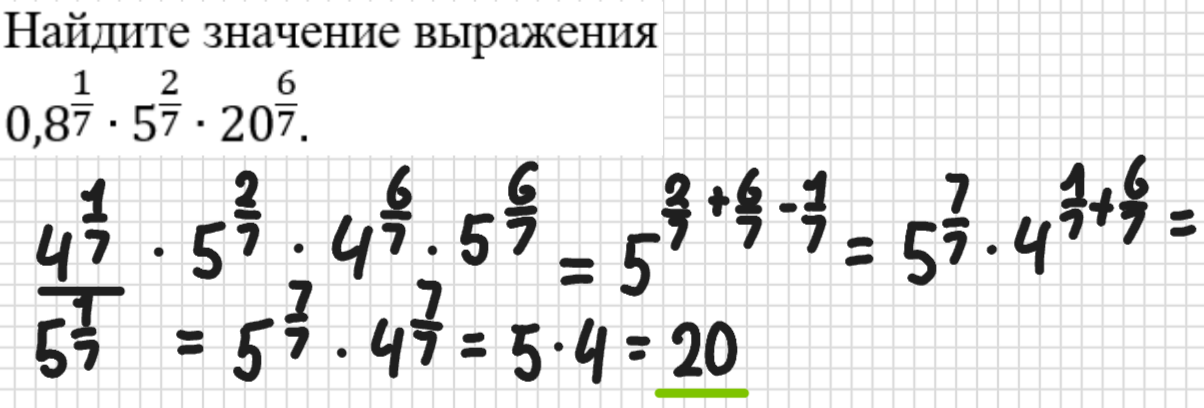 Найдите значение выражения
0,8^{1/7} · 5^{2/7} · 20^{6/7}.
4^{1/7}/5^{1/7} · 5^{2/7} · 4^{6/7} · 5^{6/7} = 5^{2/7+6/7-1/7} = 5^{7/7} · 4^{1/7+6/7} =
= 5^{7/7} · 4^{7/7} = 5 · 4 = 20